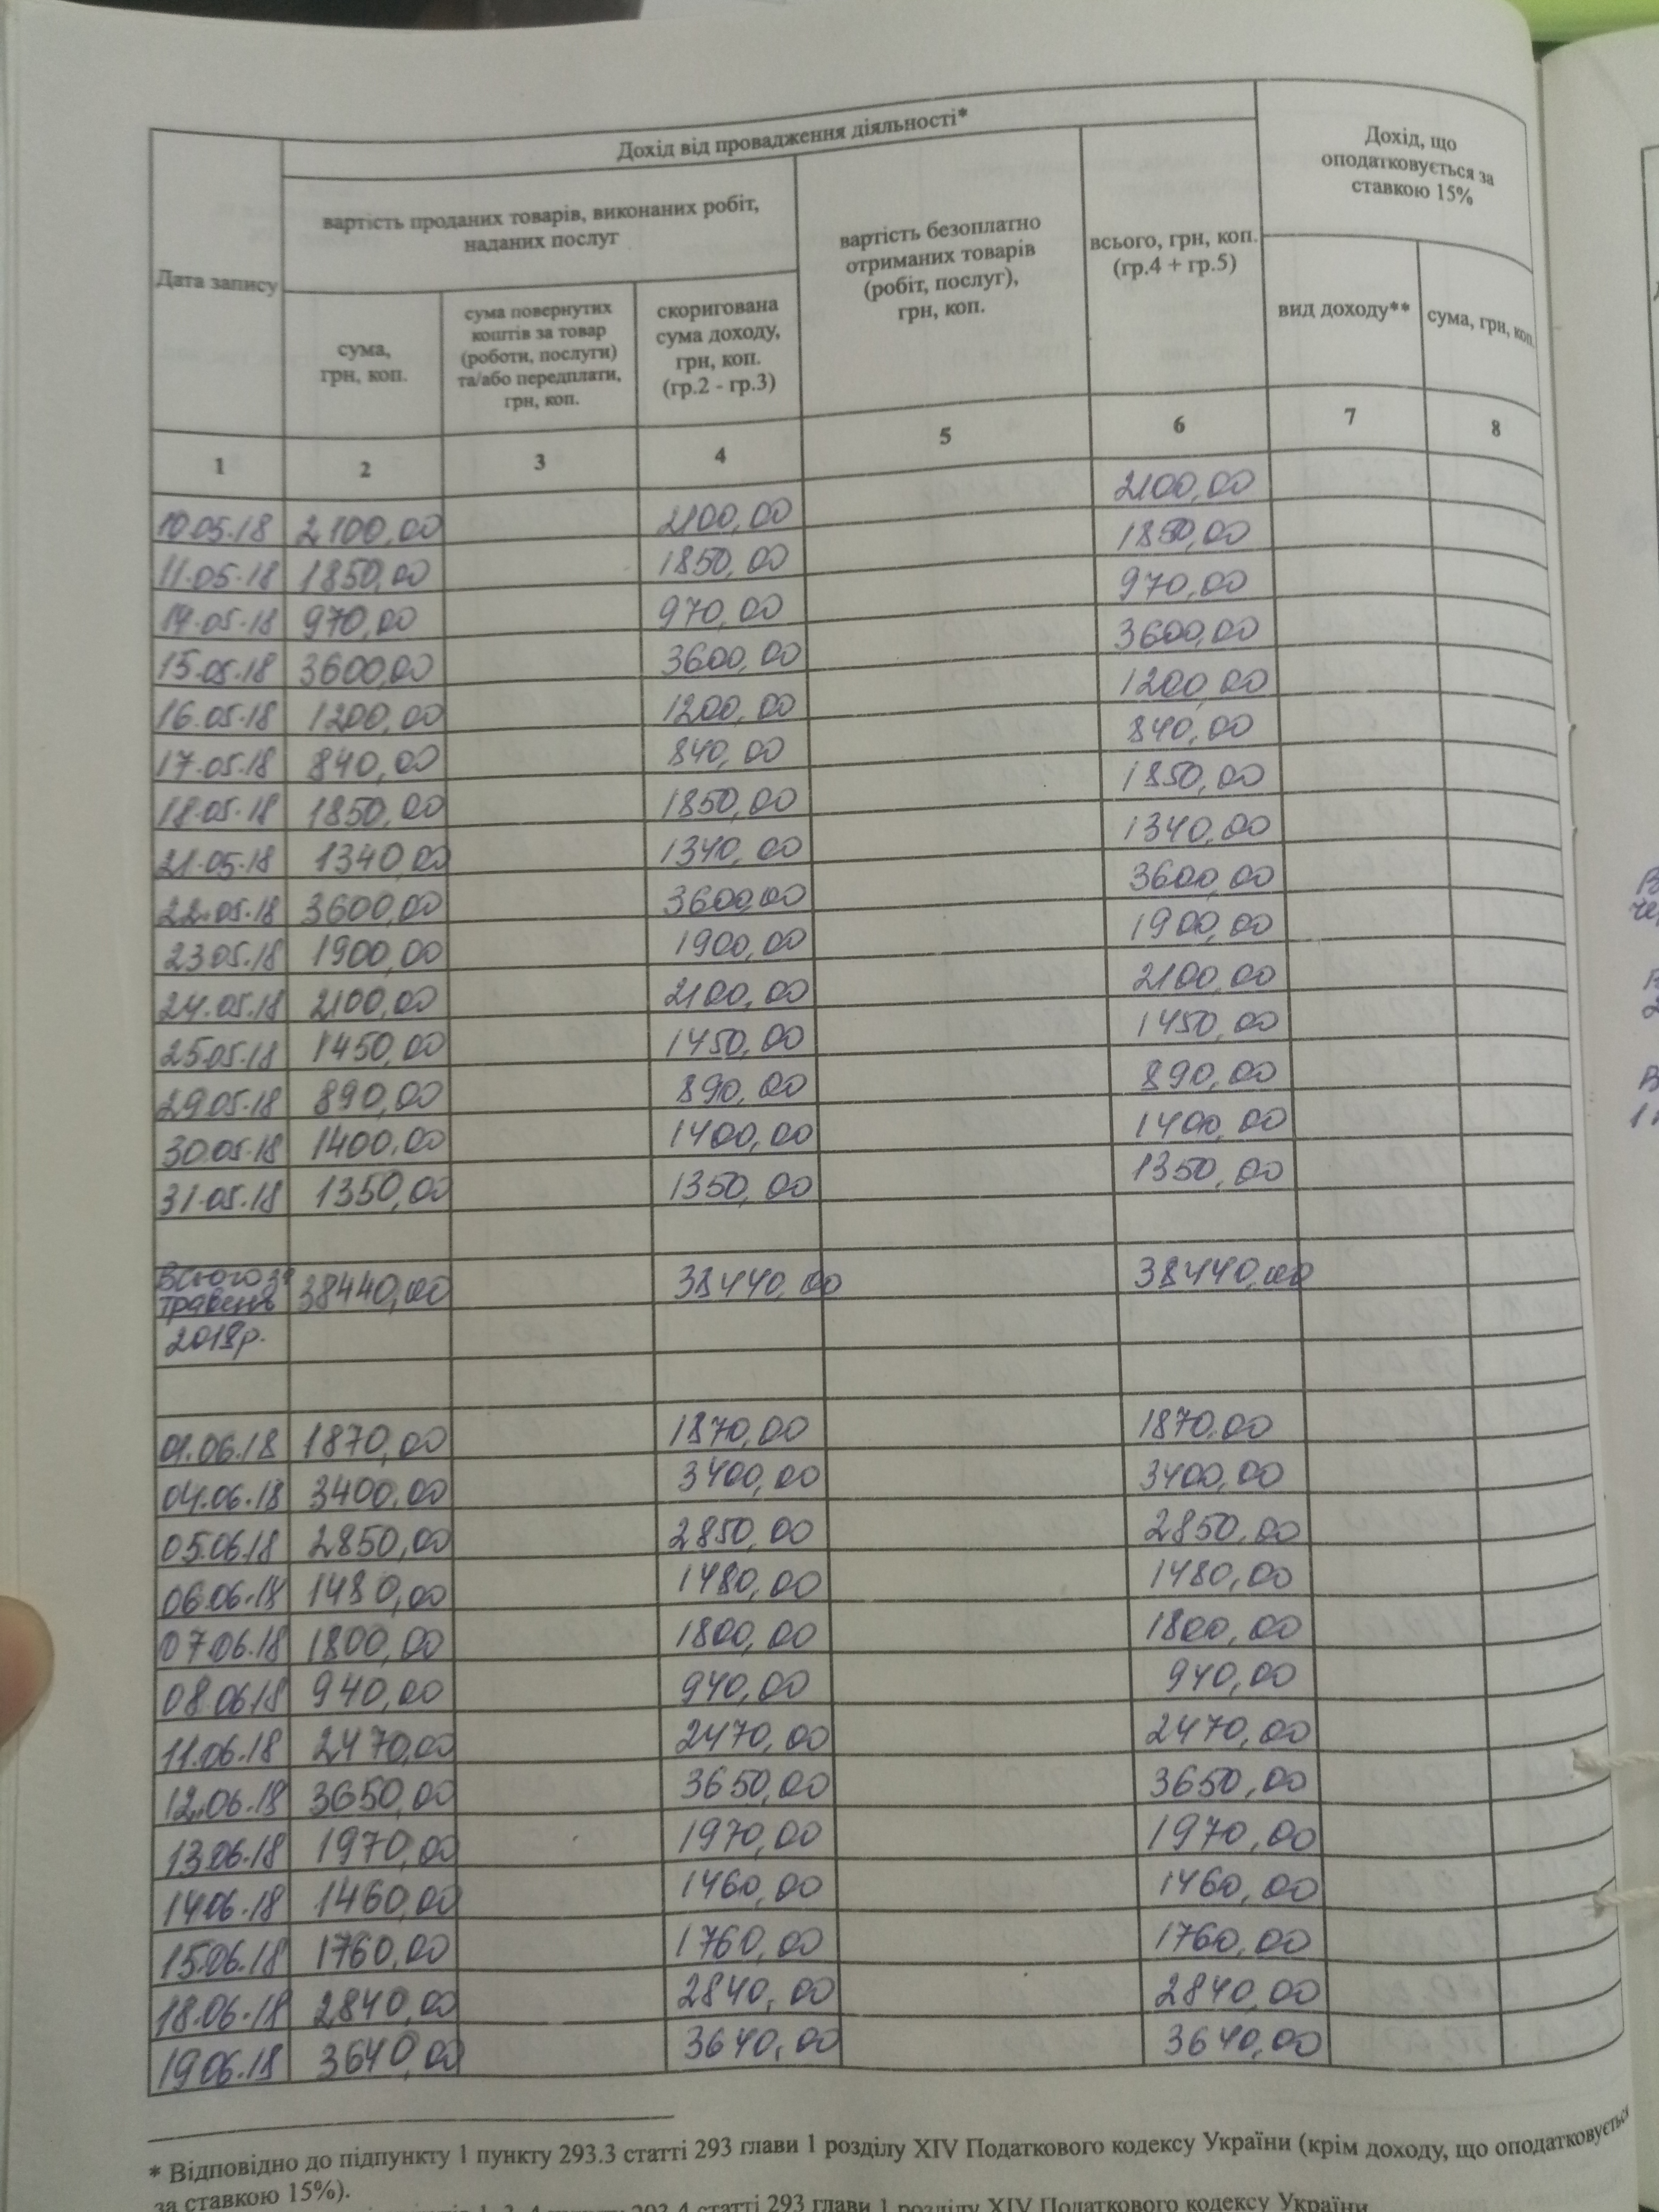 Дата запису
Дохід від провадження діяльності*
Дохід, що
оподатковується за
ставкою 15%
вартість проданих товарів, виконаних робіт,
наданих послуг
вартість безоплатно
отриманих товарів
(робіт, послуг),
грн, коп.
всього, грн, коп.
(гр.4 + гр.5)
сума,
грн, коп.
сума повернутих
коштів за товар
(роботи, послуги)
та/або передплати,
грн, коп.
скоригована
сума доходу,
грн, коп.
(гр.2 - гр.3)
вид доходу**
сума, грн, коп.
1 2 3 4 5 6 7 8
10.05.18 2100,00 2100,00 2100,00
11.05.18 1850,00 1850,00 1850,00
14.05.18 970,00 970,00 970,00
15.05.18 3600,00 3600,00 3600,00
16.05.18 1200,00 1200,00 1200,00
17.05.18 840,00 840,00 840,00
18.05.18 1850,00 1850,00 1850,00
21.05.18 1340,00 1340,00 1340,00
22.05.18 3600,00 3600,00 3600,00
23.05.18 1900,00 1900,00 1900,00
24.05.18 2100,00 2100,00 2100,00
25.05.18 1450,00 1450,00 1450,00
29.05.18 890,00 890,00 890,00
30.05.18 1400,00 1400,00 1400,00
31.05.18 1350,00 1350,00 1350,00
Всього за
травень 38440,00 38440,00 38440,00
2018р.
01.06.18 1870,00 1870,00 1870,00
04.06.18 3400,00 3400,00 3400,00
05.06.18 2850,00 2850,00 2850,00
06.06.18 1480,00 1480,00 1480,00
07.06.18 1800,00 1800,00 1800,00
08.06.18 940,00 940,00 940,00
11.06.18 2470,00 2470,00 2470,00
12.06.18 3650,00 3650,00 3650,00
13.06.18 1970,00 1970,00 1970,00
14.06.18 1460,00 1460,00 1460,00
15.06.18 1760,00 1760,00 1760,00
18.06.18 2840,00 2840,00 2840,00
19.06.18 3640,00 3640,00 3640,00
* Відповідно до підпункту 1 пункту 293.3 статті 293 глави 1 розділу XIV Податкового кодексу України (крім доходу, що оподатковується
за ставкою 15%).
1, 3, 4 пункту 293.4 статті 293 глави 1 розділу XIV Податкового кодексу України